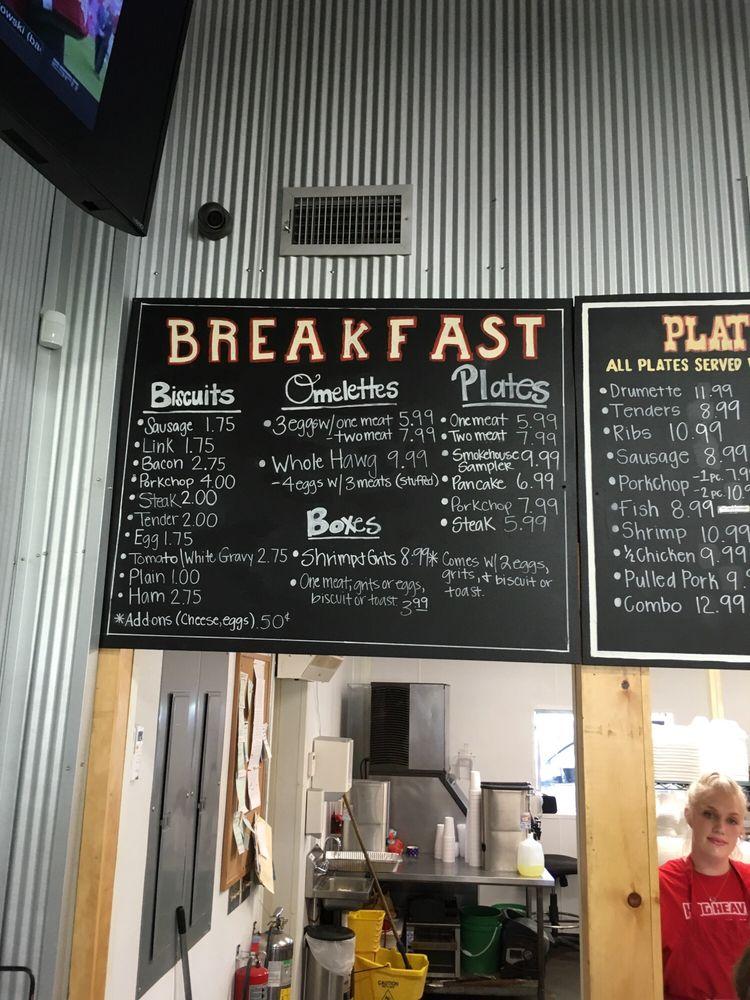 owski (ba
ESPN
BREAKFAST
Biscuits
• Sausage 1.75
• Link 1.75
• Bacon 2.75
• Porkchop 4.00
• Steak 2.00
• Tender 2.00
• Egg 1.75
• Tomato/White Gravy 2.75
• Plain 1.00
• Ham 2.75
*Addons (Cheese, eggs) .50¢
Omelettes
• 3 eggs w/one meat 5.99
- two meat 7.99
• Whole Hawg 9.99
- 4 eggs w/ 3 meats (stuffed)
Boxes
• Shrimp & Grits 8.99
• One meat, grits or eggs,
biscuit or toast. 3.99
Plates
• One meat 5.99
• Two meat 7.99
• Smokehouse
Sampler 9.99
• Pancake 6.99
• Porkchop 7.99
• Steak 5.99
* Comes w/ 2 eggs,
grits, & biscuit or
toast.
PLAT
ALL PLATES SERVED
• Drumette 11.99
• Tenders 8.99
• Ribs 10.99
• Sausage 8.99
• Porkchop - 1 pc. 7.9
- 2 pc. 10.9
• Fish 8.99
• Shrimp 10.99
• ½ Chicken 9.99
• Pulled Pork 9.
• Combo 12.99
CAUTION
HOG HEAV